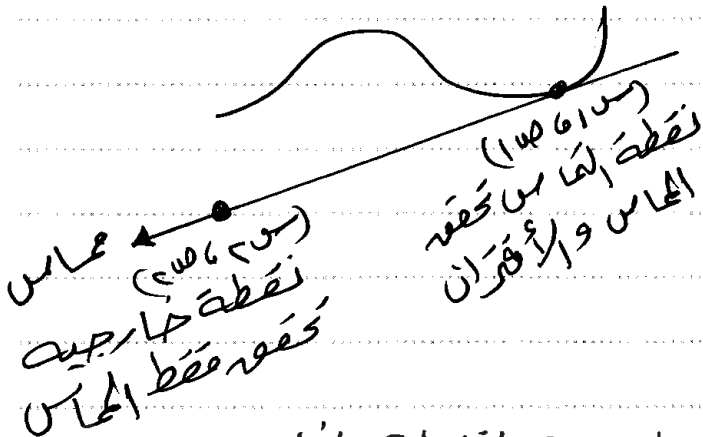 (س١ ، ص١)
نقطة التماس تحقق
المماس والأقتران
مماس
(س٢ ، ص٢)
نقطة خارجية
تحقق فقط المماس